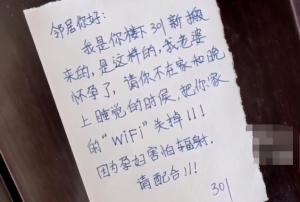 邻居你好：
我是你楼下301新搬
来的，是这样的，我老婆
怀孕了，请你不在家如晚
上睡觉的时候，把你家
的“WiFi”关掉！！！
因为孕妇害怕辐射。
请配合！！！
301